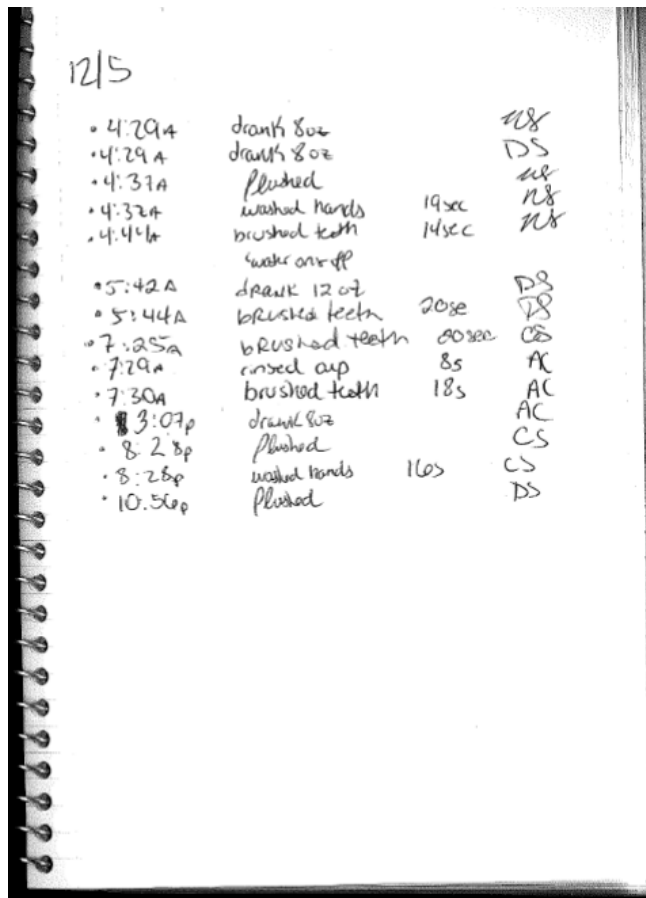 12/5
• 4:29A drank 8oz NS
• 4:29A drank 8oz DS
• 4:31A flushed NS
• 4:32A washed hands 19sec NS
• 4:44A brushed teeth 14sec NS
water on & off
• 5:42A drank 12oz DS
• 5:44A brushed teeth 20se DS
• 7:25A brushed teeth 20sec CS
• 7:29A rinsed cup 8s AC
• 7:30A brushed teeth 18s AC
• 3:07p drank 8oz AC
• 8:28p flushed CS
• 8:28p washed hands 16s CS
• 10:56p flushed DS